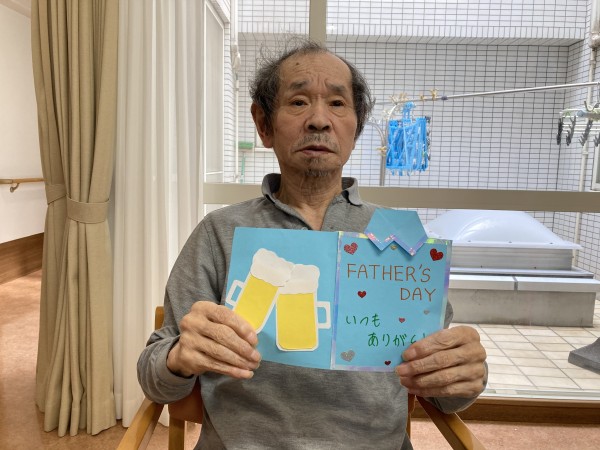 FATHER'S
DAY
いつも
ありがと